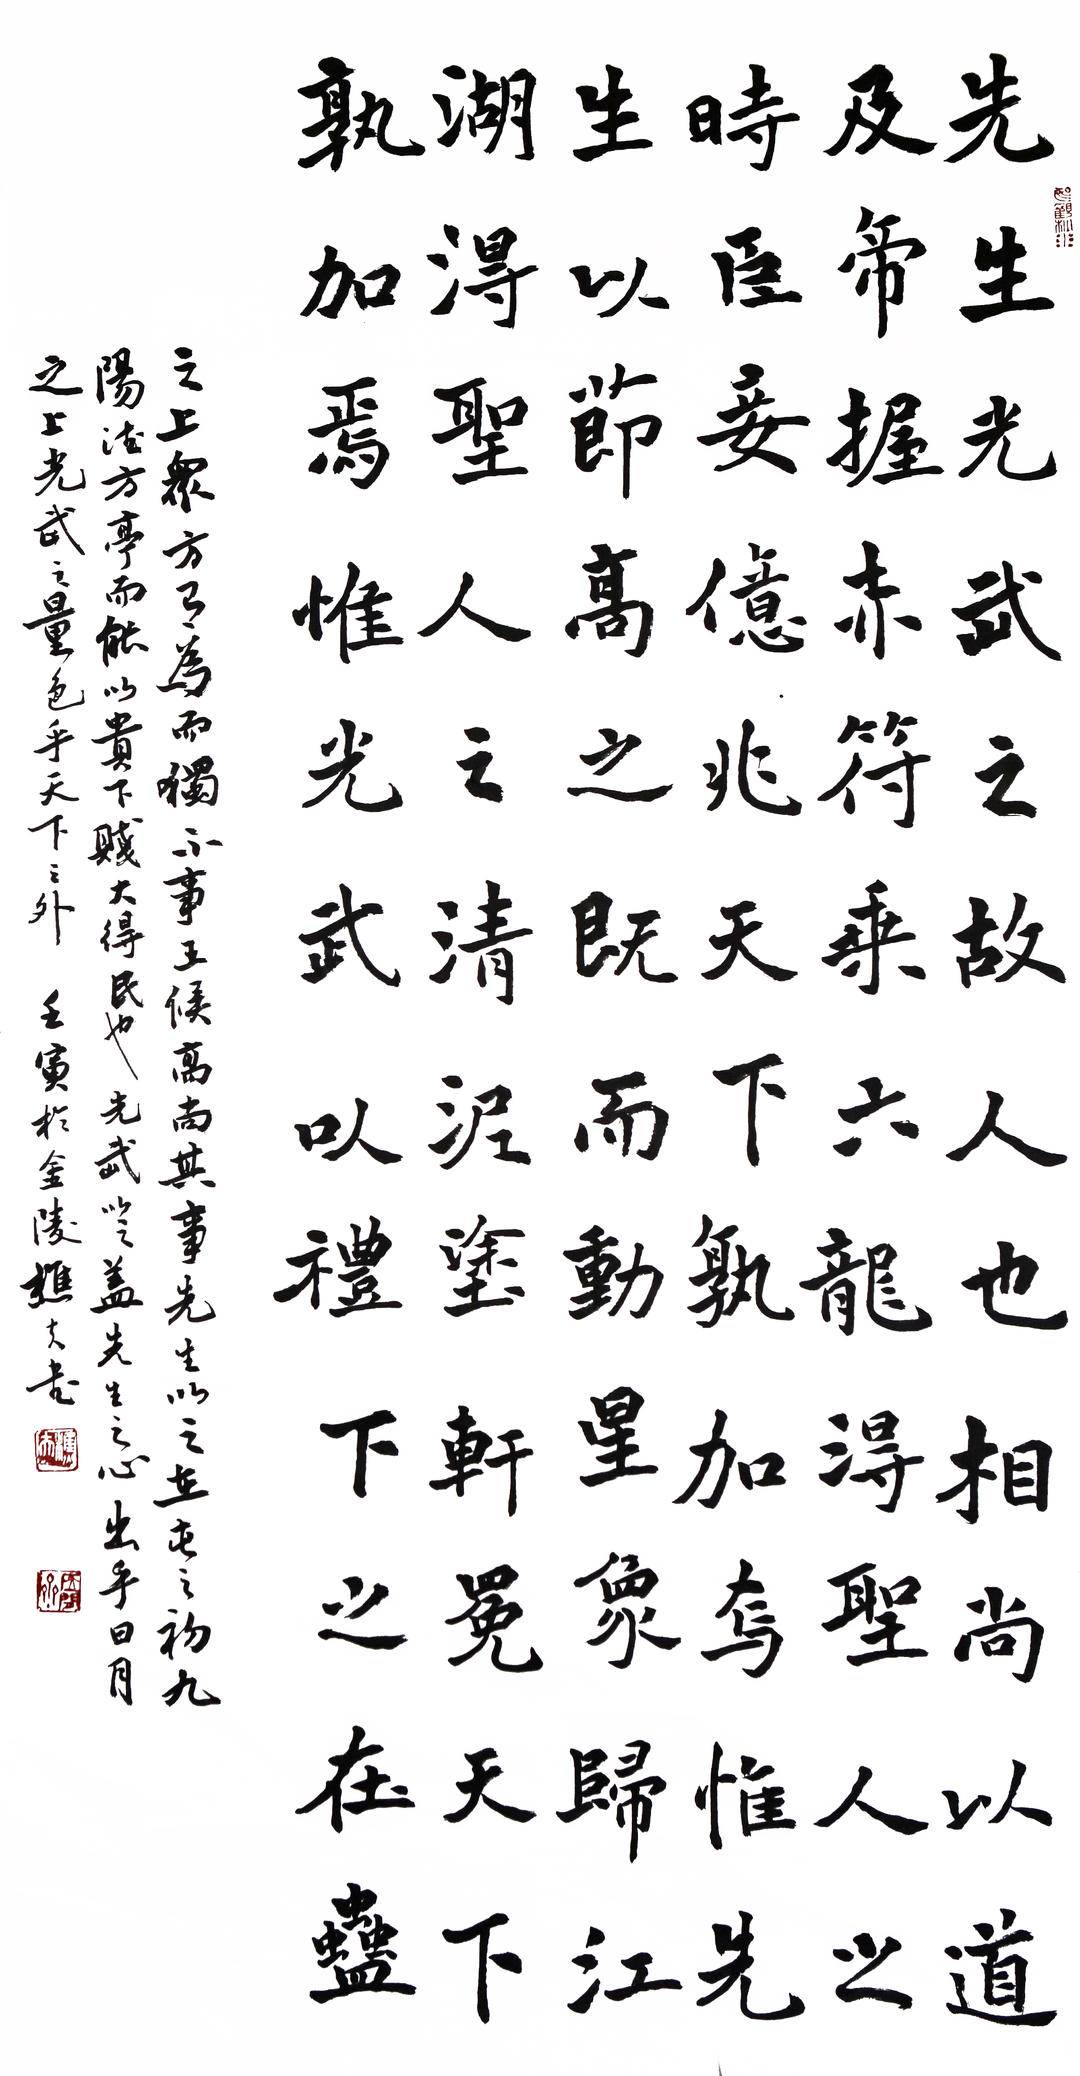 先生光武之故人也相尚以道
及帝握赤符乘六龍得聖人之
時臣妾億兆天下孰加焉惟先
生以節高之既而動星象歸江
湖得聖人之清泥塗軒冕天下
孰加焉惟光武以禮下之在蠱
之上眾方有為而獨不事王侯高尚其事先生以之在屯之初九
陽德方亨而能以貴下賤大得民也光武以之蓋先生之心出乎日月
之上光武之量包乎天下之外 壬寅於金陵樵夫書